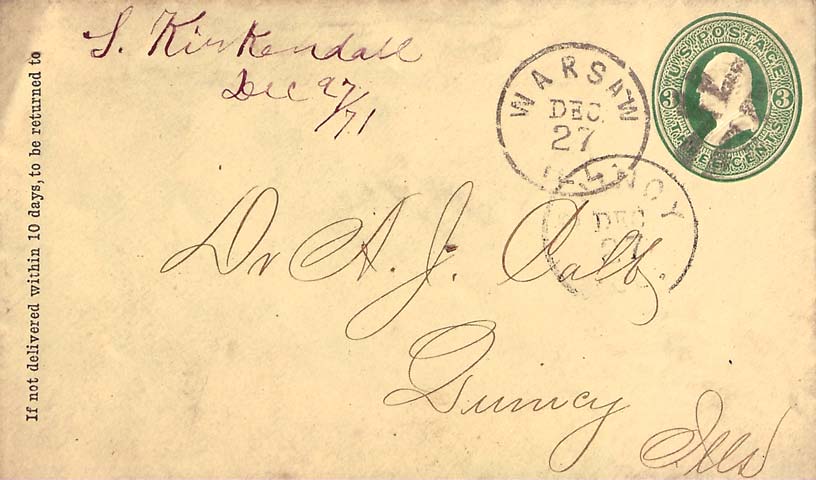 S. Kirkendall
Dec 27/71
WARSAW
DEC.
27
ILL
U.S. POSTAGE
3 3
THREE CENTS
DEC
27
Dr A. J.
Quincy
Ills
If not delivered within 10 days, to be returned to